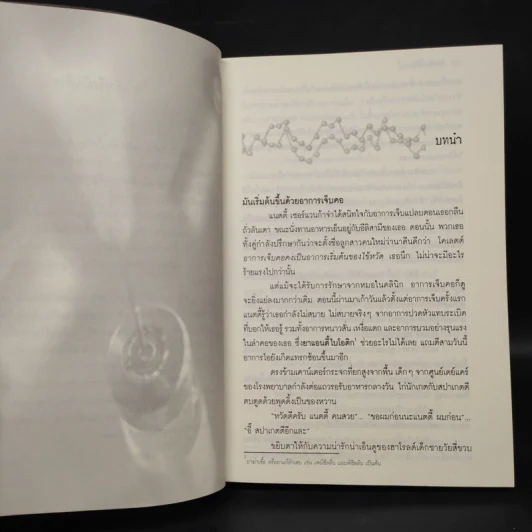 บทนำ
มันเริ่มต้นขึ้นด้วยอาการเจ็บคอ
แนตตี้ เชอร์แวนก้าจำได้สนิทใจกับอาการเจ็บแปลบตอนเธอกลืน
ถั่วลันเตา ขณะนั่งทานอาหารเย็นอยู่กับอีลิสามีของเธอ ตอนนั้น พวกเธอ
ทั้งคู่กำลังปรึกษากันว่าจะตั้งชื่อลูกสาวคนใหม่ว่านาตีนดีกว่า โคเลตต์
อาการเจ็บคอคงเป็นอาการเริ่มต้นของไข้หวัด เธอนึก ไม่น่าจะมีอะไร
ร้ายแรงไปกว่านั้น
แต่แม้จะได้รับการรักษาจากหมอในคลินิก อาการเจ็บคอก็ดู
จะยิ่งแย่ลงมากกว่าเดิม ตอนนี้ผ่านมาเก้าวันแล้วตั้งแต่อาการเจ็บครั้งแรก
แนตตี้รู้ว่าเธอกำลังไม่สบาย ไม่สบายจริงๆ จากอาการปวดหัวแทบระเบิด
ที่บอกให้เธอรู้ รวมทั้งอาการหนาวสั่น เหงื่อแตก และอาการบวมอย่างรุนแรง
ในลำคอของเธอ ซึ่งยาแอนตี้ไบโอติก¹ ช่วยอะไรไม่ได้เลย แถมตีสามวันนี้
อาการไอยังเกิดแทรกซ้อนขึ้นมาอีก
ตรงข้ามเคาน์เตอร์กระจกที่ยกสูงจากพื้น เด็กๆ จากศูนย์เดย์แคร์
ของโรงพยาบาลกำลังต่อแถวรอรับอาหารกลางวัน ไก่นักเกตกับสปาเกตตี
ตบตูดด้วยพุดดิ้งเป็นของหวาน
"หวัดดีครับ แนตตี้ คนสวย"... "ขอผมก่อนนะแนตตี้ ผมก่อน"...
"อี๋ สปาเกตตีอีกและ"
ขยิบตาให้กับความน่ารักน่าเอ็นดูของฮาโรลด์เด็กชายวัยสี่ขวบ